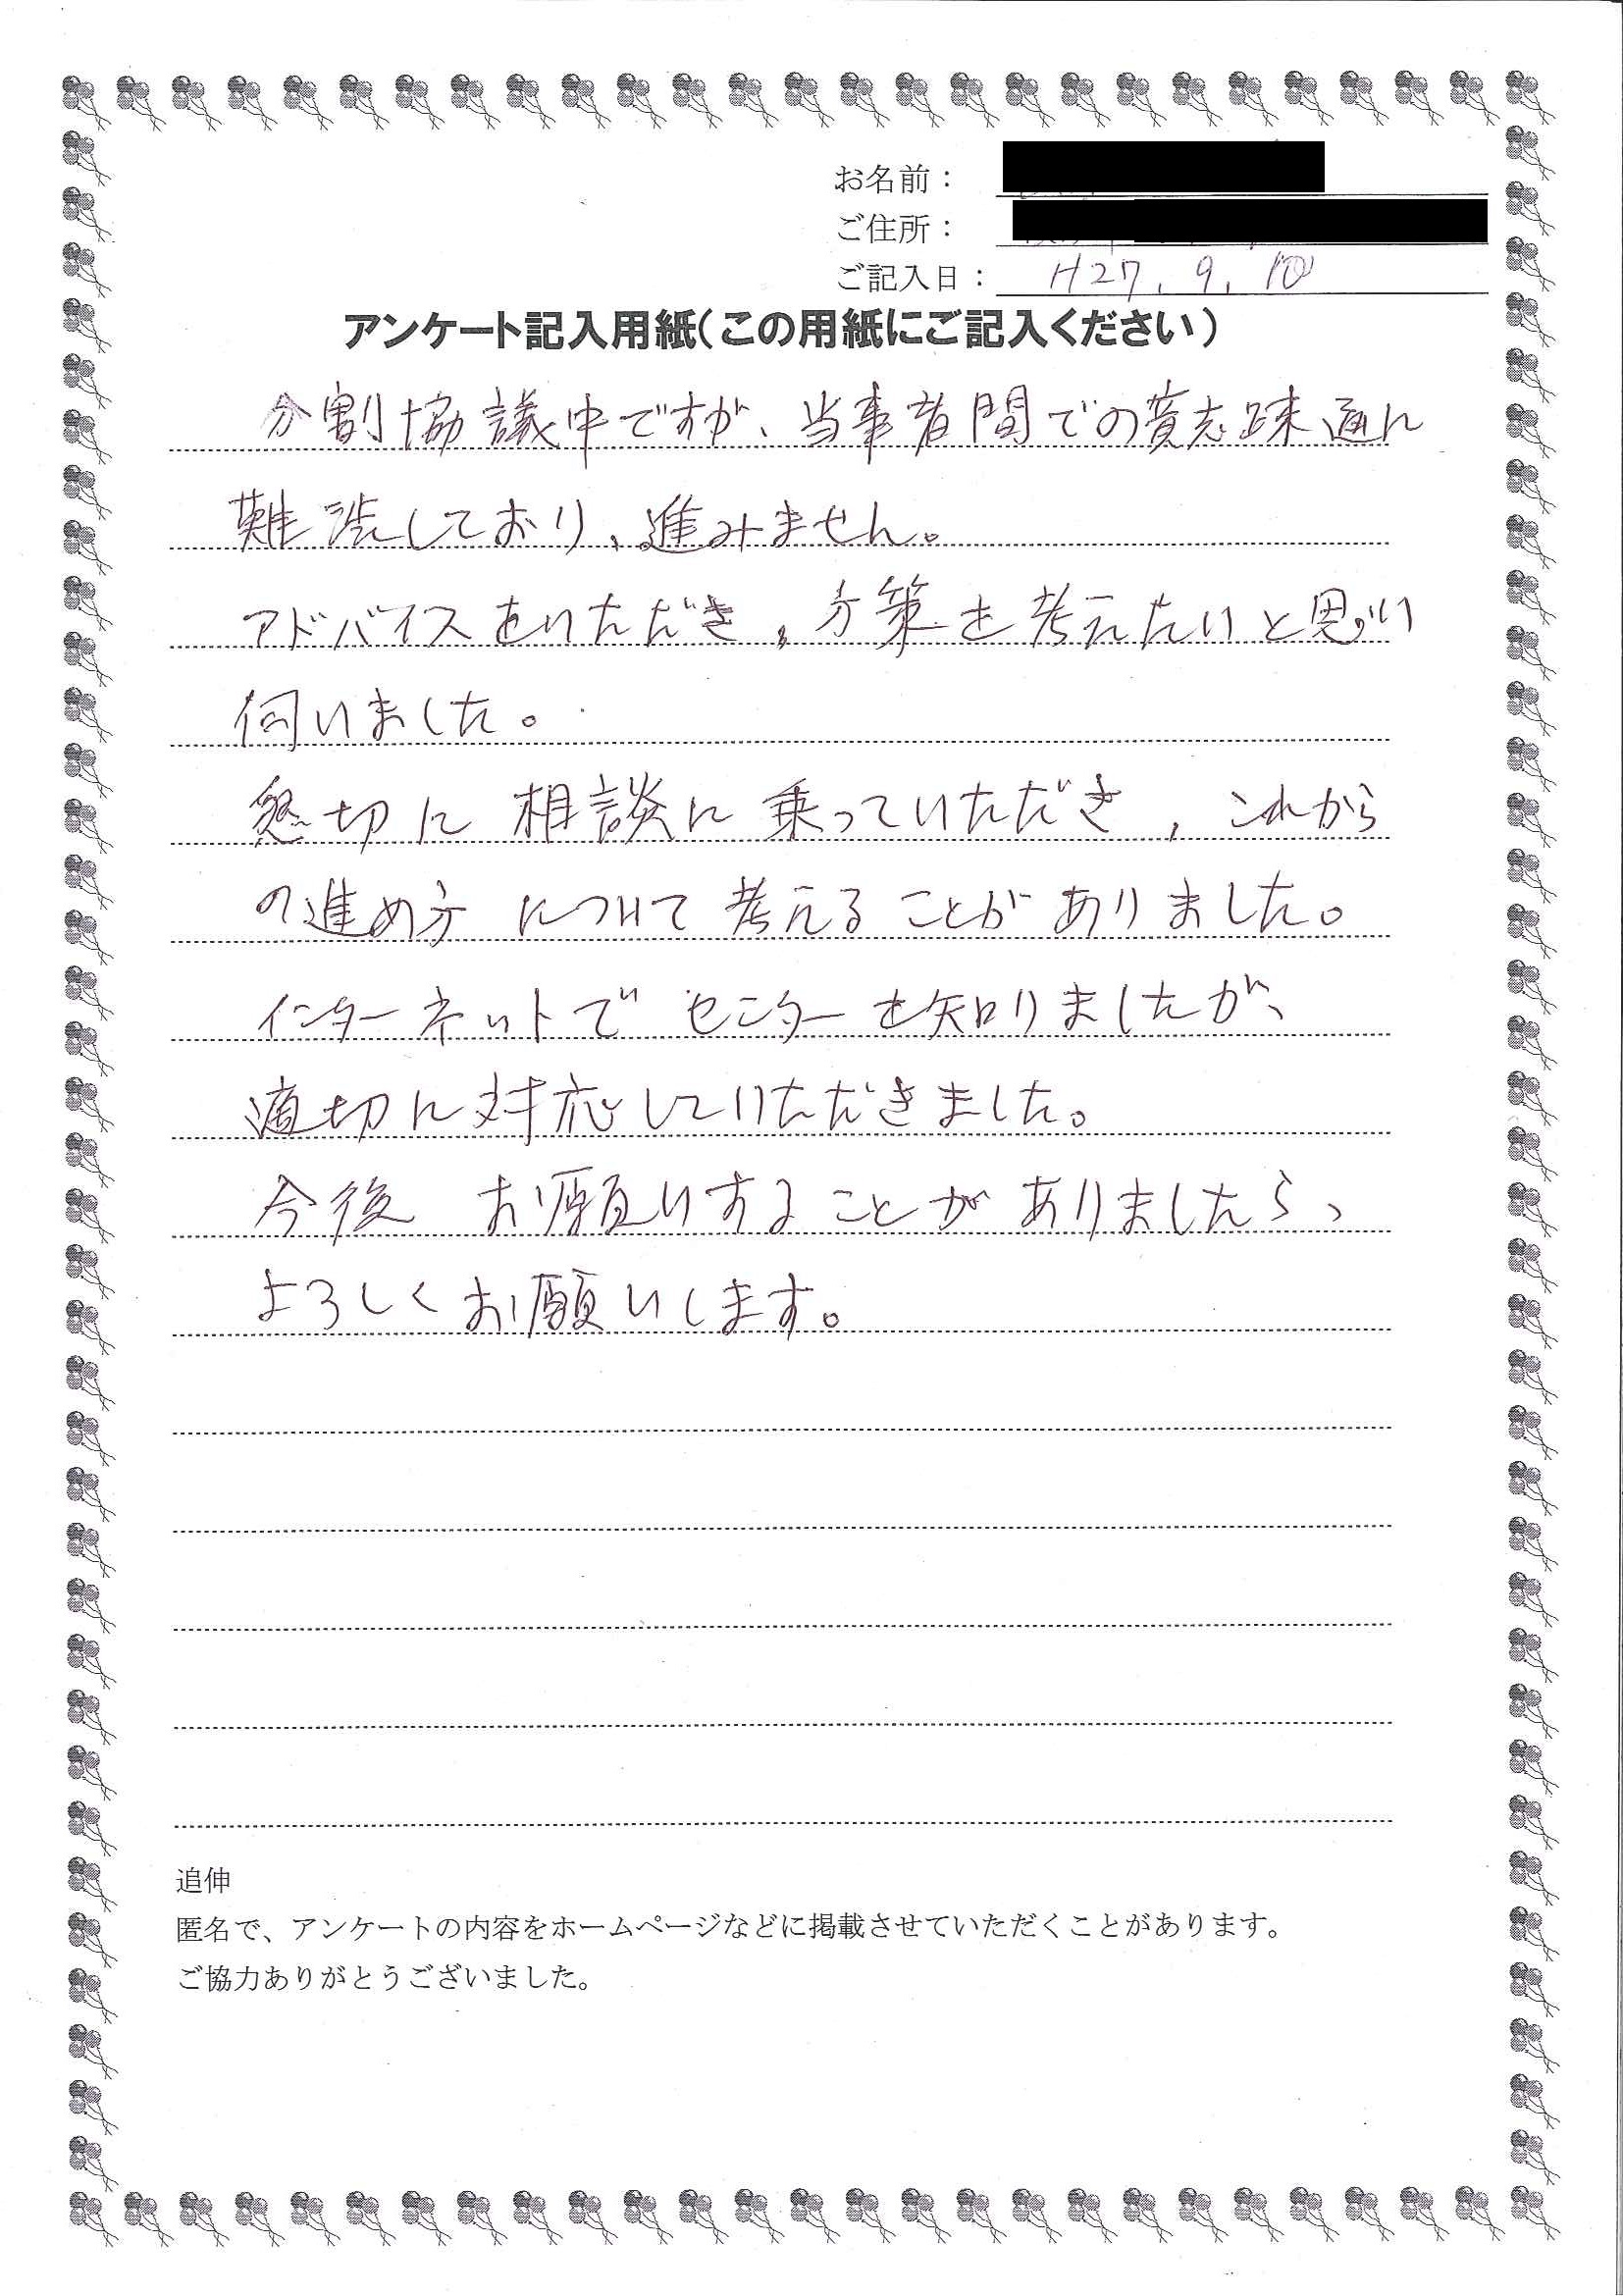 お名前:
ご住所:
ご記入日: H27.9.10
アンケート記入用紙(この用紙にご記入ください)
分割協議中ですが、当事者間での意志疎通に
難渋しており、進みません。
アドバイスをいただき、方策を考えたいと思い
伺いました。
懇切に相談に乗っていただき、これから
の進め方について考えることがありました。
インターネットでセンターを知りましたが、
適切に対応していただきました。
今後お願いすることがありましたら、
よろしくお願いします。
追伸
匿名で、アンケートの内容をホームページなどに掲載させていただくことがあります。
ご協力ありがとうございました。